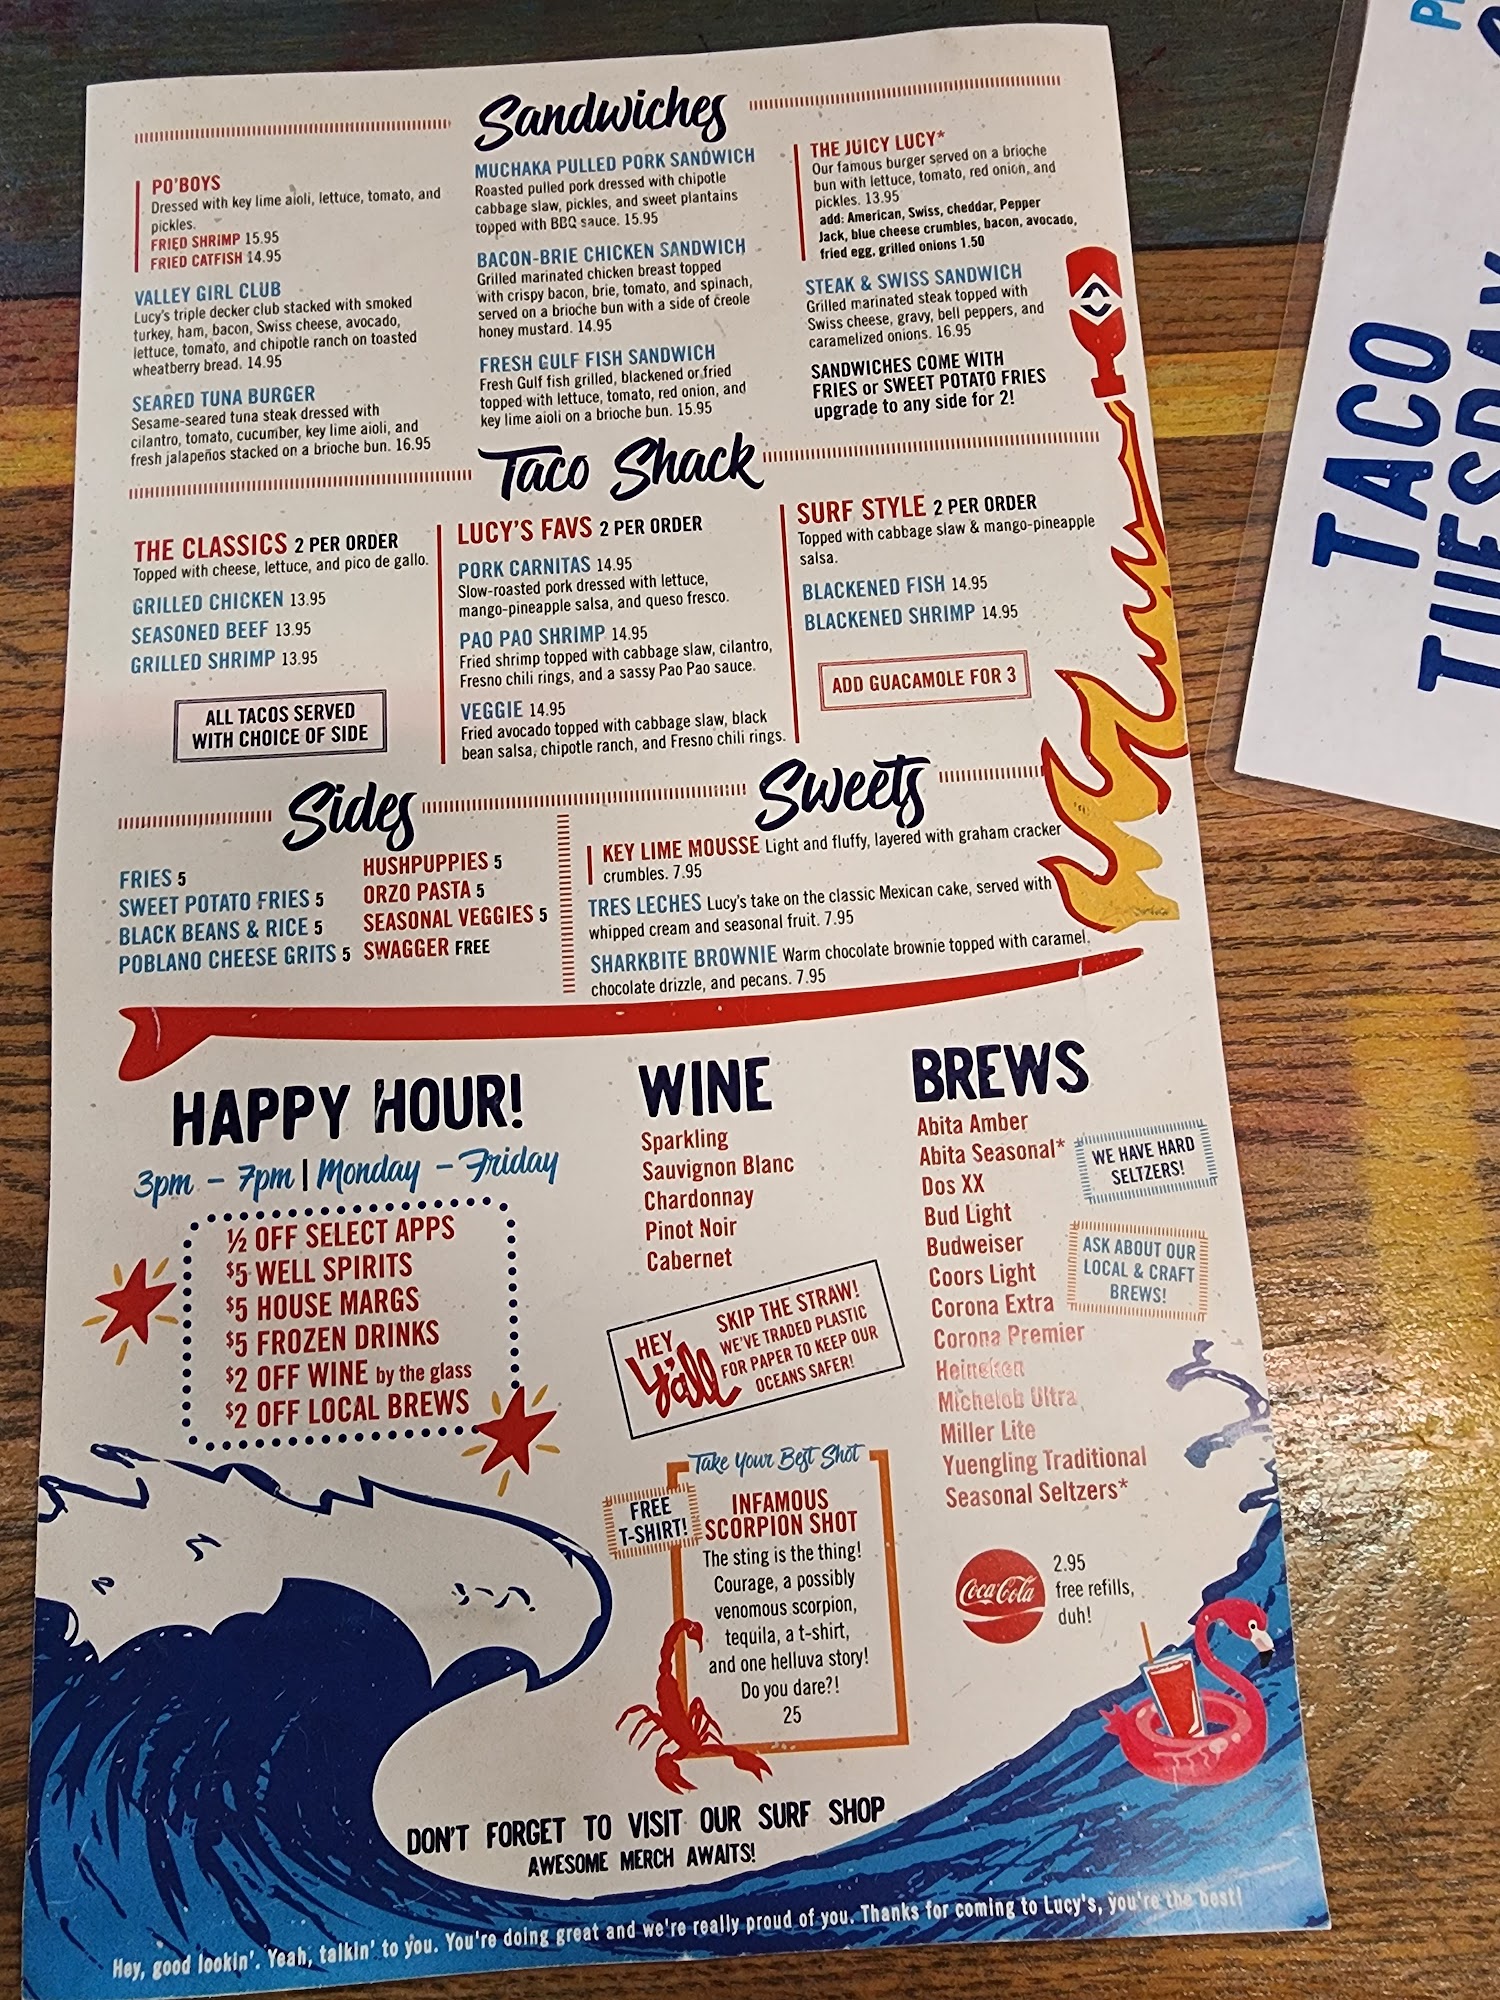 Sandwiches
PO'BOYS
Dressed with key lime aioli, lettuce, tomato, and
pickles.
FRIED SHRIMP 15.95
FRIED CATFISH 14.95
VALLEY GIRL CLUB
Lucy's triple decker club stacked with smoked
turkey, ham, bacon, Swiss cheese, avocado,
lettuce, tomato, and chipotle ranch on toasted
wheatberry bread. 14.95
SEARED TUNA BURGER
Sesame-seared tuna steak dressed with
cilantro, tomato, cucumber, key lime aioli, and
fresh jalapeños stacked on a brioche bun. 16.95
MUCHAKA PULLED PORK SANDWICH
Roasted pulled pork dressed with chipotle
cabbage slaw, pickles, and sweet plantains
topped with BBQ sauce. 15.95
BACON-BRIE CHICKEN SANDWICH
Grilled marinated chicken breast topped
with crispy bacon, brie, tomato, and spinach,
served on a brioche bun with a side of creole
honey mustard. 14.95
FRESH GULF FISH SANDWICH
Fresh Gulf fish grilled, blackened or fried
topped with lettuce, tomato, red onion, and
key lime aioli on a brioche bun. 15.95
THE JUICY LUCY*
Our famous burger served on a brioche
bun with lettuce, tomato, red onion, and
pickles. 13.95
add: American, Swiss, cheddar, Pepper
Jack, blue cheese crumbles, bacon, avocado,
fried egg, grilled onions 1.50
STEAK & SWISS SANDWICH
Grilled marinated steak topped with
Swiss cheese, gravy, bell peppers, and
caramelized onions. 16.95
SANDWICHES COME WITH
FRIES or SWEET POTATO FRIES
upgrade to any side for 2!
Taco Shack
THE CLASSICS 2 PER ORDER
Topped with cheese, lettuce, and pico de gallo.
GRILLED CHICKEN 13.95
SEASONED BEEF 13.95
GRILLED SHRIMP 13.95
ALL TACOS SERVED
WITH CHOICE OF SIDE
LUCY'S FAVS 2 PER ORDER
PORK CARNITAS 14.95
Slow-roasted pork dressed with lettuce,
mango-pineapple salsa, and queso fresco.
PAO PAO SHRIMP 14.95
Fried shrimp topped with cabbage slaw, cilantro,
Fresno chili rings, and a sassy Pao Pao sauce.
VEGGIE 14.95
Fried avocado topped with cabbage slaw, black
bean salsa, chipotle ranch, and Fresno chili rings.
SURF STYLE 2 PER ORDER
Topped with cabbage slaw & mango-pineapple
salsa.
BLACKENED FISH 14.95
BLACKENED SHRIMP 14.95
ADD GUACAMOLE FOR 3
Sides
FRIES 5
SWEET POTATO FRIES 5
BLACK BEANS & RICE 5
POBLANO CHEESE GRITS 5
HUSHPUPPIES 5
ORZO PASTA 5
SEASONAL VEGGIES 5
SWAGGER FREE
Sweets
KEY LIME MOUSSE Light and fluffy, layered with graham cracker
crumbles. 7.95
TRES LECHES Lucy's take on the classic Mexican cake, served with
whipped cream and seasonal fruit. 7.95
SHARKBITE BROWNIE Warm chocolate brownie topped with caramel,
chocolate drizzle, and pecans. 7.95
HAPPY HOUR!
3pm - 7pm | Monday - Friday
½ OFF SELECT APPS
$5 WELL SPIRITS
$5 HOUSE MARGS
$5 FROZEN DRINKS
$2 OFF WINE by the glass
$2 OFF LOCAL BREWS
WINE
Sparkling
Sauvignon Blanc
Chardonnay
Pinot Noir
Cabernet
HEY
y'all
SKIP THE STRAW!
WE'VE TRADED PLASTIC
FOR PAPER TO KEEP OUR
OCEANS SAFER!
Take Your Best Shot
FREE
T-SHIRT!
INFAMOUS
SCORPION SHOT
The sting is the thing!
Courage, a possibly
venomous scorpion,
tequila, a t-shirt,
and one helluva story!
Do you dare?!
25
BREWS
Abita Amber
Abita Seasonal*
Dos XX
Bud Light
Budweiser
Coors Light
Corona Extra
Corona Premier
Heineken
Michelob Ultra
Miller Lite
Yuengling Traditional
Seasonal Seltzers*
WE HAVE HARD
SELTZERS!
ASK ABOUT OUR
LOCAL & CRAFT
BREWS!
Coca-Cola
2.95
free refills,
duh!
DON'T FORGET TO VISIT OUR SURF SHOP
AWESOME MERCH AWAITS!
Hey, good lookin'. Yeah, talkin' to you. You're doing great and we're really proud of you. Thanks for coming to Lucy's, you're the best!
TACO
TUESDAY